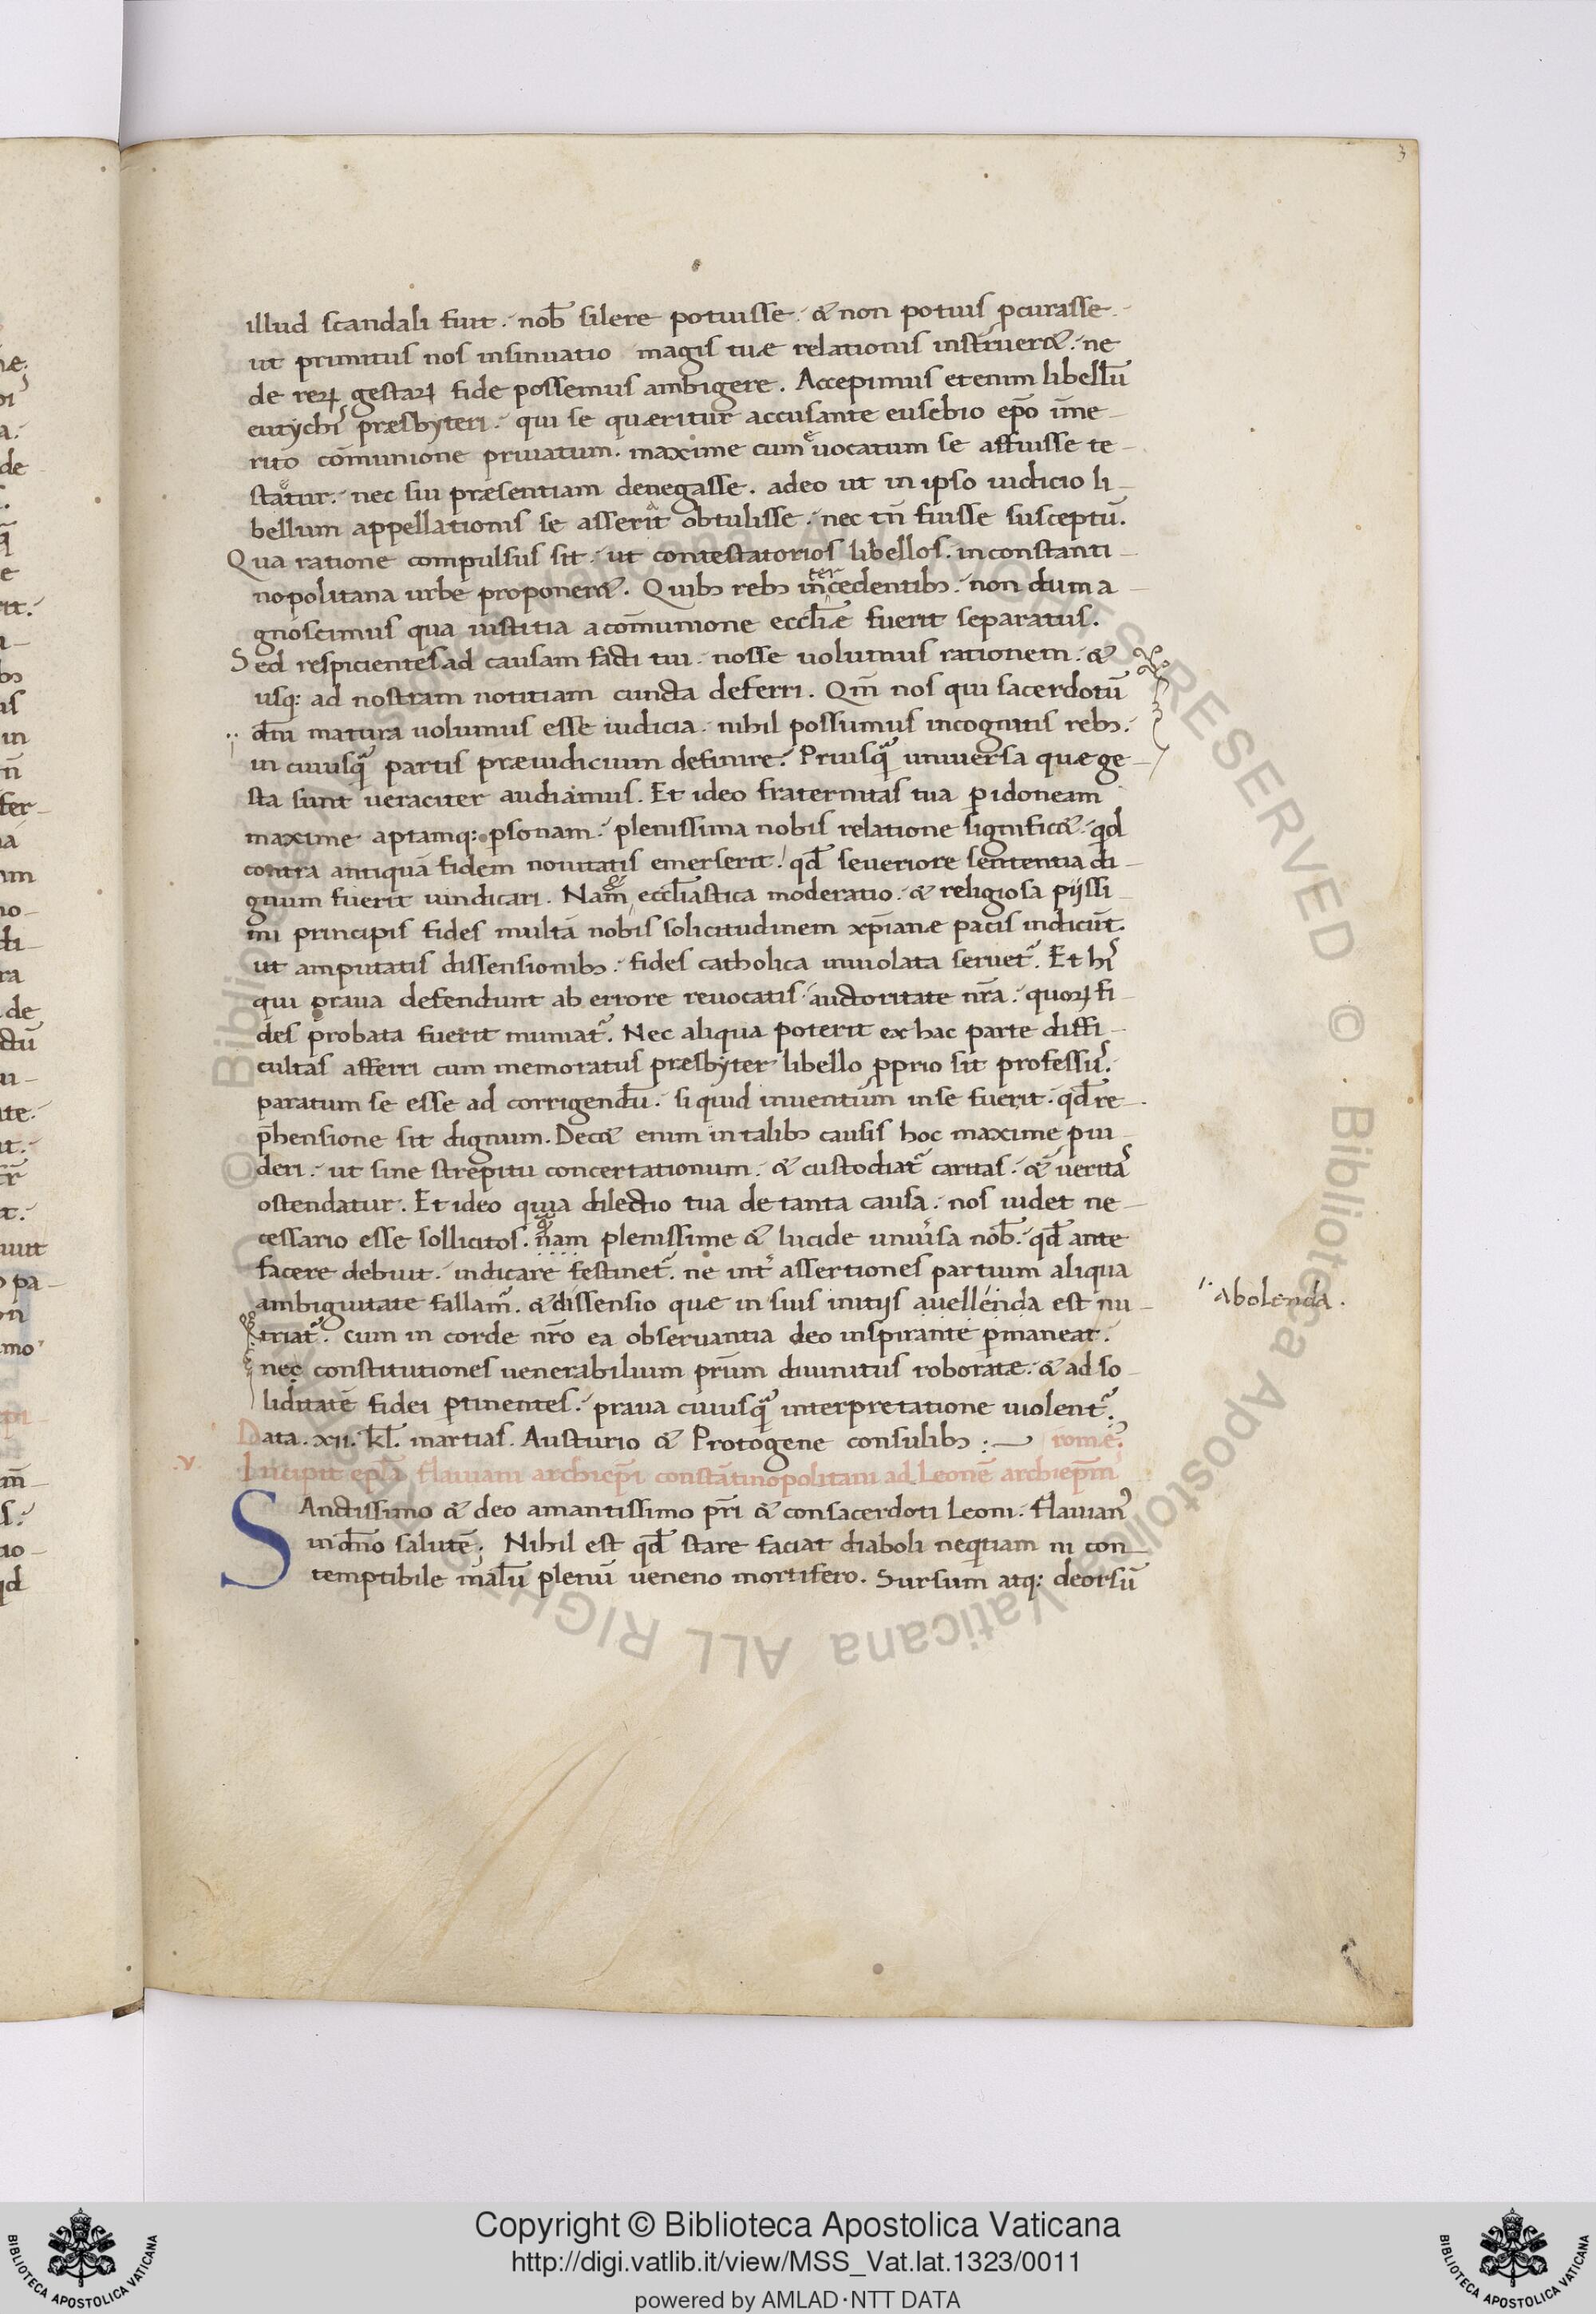 3
illud scandali fuit. nob̅ silere potuisse. & non potius ꝑcurasse.
ut primitus nos insinuatio magis tuæ relationis instruer&. ne
de reꝝ gestaꝝ fide possemus ambigere. Accepimus etenim libellū
eutychis præsbyteri. qui se quæritur accusante eusebio ep̅o īme-
rito cōmunione priuatum. maxime cum euocatum se affuisse te-
stetur. nec sui præsentiam denegasse. adeo ut in ipso iudicio li-
bellum appellationis se asserat obtulisse. nec tn̅ fuisse susceptū.
Qua ratione compulsus sit. ut contestatorios libellos. inconstanti-
nopolitana urbe proponer&. Quibꝫ rebꝫ intercedentibꝫ. non dum a-
gnoscimus qua iustitia acōmunione eccl̅iæ fuerit separatus.
Sed respicientes ad causam facti tui. nosse uolumus rationem. &
usq: ad nostram notitiam cuncta deferri. Qm̅ nos qui sacerdotū
dn̅i matura uolumus esse iudicia. nihil possumus incognitis rebꝫ.
in cuiusquā partis præiudicium definire. Priusquā uniuersa quæ ge-
sta sunt ueraciter audiamus. Et ideo fraternitas tua ꝑ idoneam
maxime aptamq: ꝑsonam. plenissima nobis relatione signific&. qd
contra antiquā fidem nouitatis emerserit. qd̅ seueriore sententia di-
gnum fuerit uindicari. Nam & eccl̅iastica moderatio. & religiosa pijssi-
mi principis fides multā nobis solicitudinem xp̅ianæ pacis indicūt.
ut amputatis dissensionibꝫ. fides catholica inuiolata seruet᷑. Et his
qui praua defendunt ab errore reuocatis. auctoritate nr̅a. quoꝝ fi-
des probata fuerit muniat᷑. Nec aliqua poterit ex hac parte diffi-
cultas afferri cum memoratus præsbyter libello ꝓprio sit professus.
paratum se esse ad corrigendū. si quid inuentum inse fuerit. qd̅ re-
p̅hensione sit dignum. Dec& enim in talibꝫ causis hoc maxime ꝓui-
deri. ut sine strepitu concertationum. & custodiat᷑ caritas. & ueritas
ostendatur. Et ideo quia dilectio tua de tanta causa. nos uidet ne-
cessario esse sollicitos. nam plenissime & lucide uniu͛sa nob̅. qd̅ ante
facere debuit. indicare festinet᷑. ne int͛ assertiones partium aliqua
ambiguitate fallam᷑. & dissensio quæ in suis initijs auellenda est nu-
abolenda.
triat᷑. cum in corde nr̅o ea obseruantia deo inspirante ꝑmaneat.
nec constitutiones uenerabilium pr̅um diuinitus roboratæ. & ad so-
liditatē fidei ꝑtinentes. praua cuiusquā interpretatione uiolent᷑.
Data. xii. kl̅. martias. Austurio & Protogene consulibꝫ : — romę.
.v. Incipit epl̅a flauiani archiep̅i constātinopolitani ad Leonē archiep̅m
SAnctissimo & deo amantissimo pr̅i & consacerdoti Leoni. flauianꝰ
indn̅o salutē. Nihil est qd̅ stare faciat diaboli neq̇tiam ni con-
temptibile malū plenū ueneno mortifero. Sursum atq: deorsū
© Biblioteca Apostolica Vaticana ALL RIGHTS RESERVED
Copyright © Biblioteca Apostolica Vaticana
http://digi.vatlib.it/view/MSS_Vat.lat.1323/0011
powered by AMLAD·NTT DATA
BIBLIOTECA APOSTOLICA VATICANA
BIBLIOTECA APOSTOLICA VATICANA